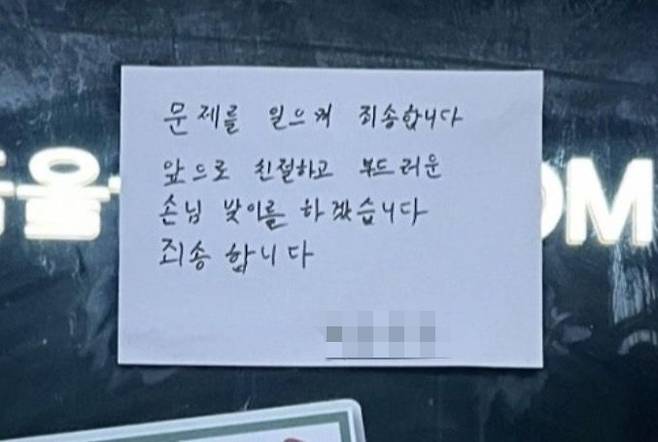 문제를 일으켜 죄송합니다
앞으로 친절하고 부드러운
손님 맞이를 하겠습니다
죄송 합니다
을
OM